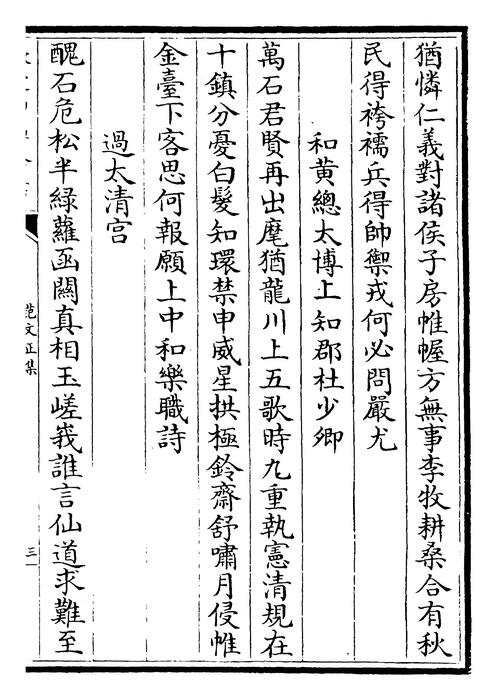 猶憐仁義對諸侯子房帷幄方無事李牧耕桑合有秋
民得袴襦兵得帥禦戎何必問嚴尤
和黄總太博上知郡杜少卿
萬石君賢再出麾猶龍川上五歌時九重執憲清規在
十鎮分憂白髮知環禁申威星拱極鈴齋舒嘯月侵帷
金臺下客思何報願上中和樂職詩
過太清宫
醜石危松半綠蘿函關真相玉嵯峩誰言仙道求難至
范文正集
三